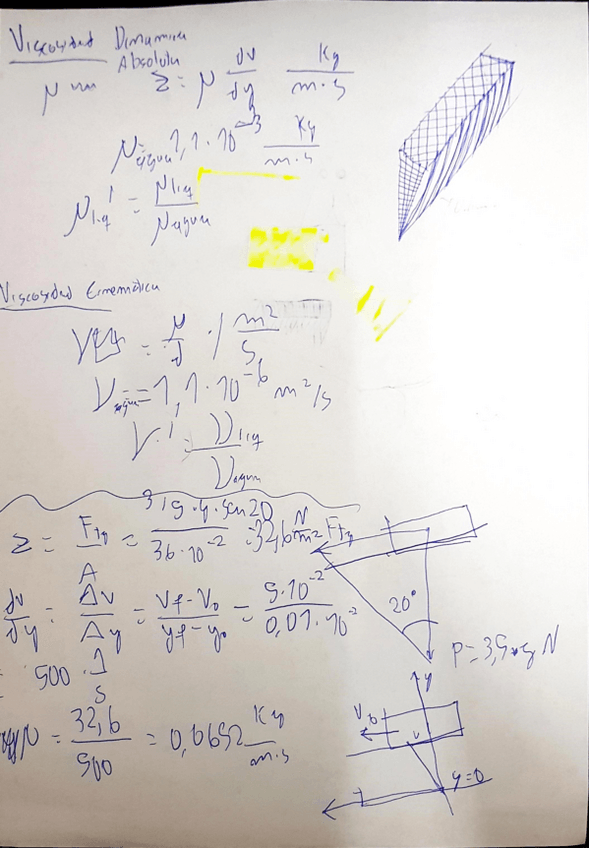 Viscosidad Dinamica
Absoluta
μ
τ = μ dv/dy Kg/m·s
μagua 1,1·10^-3 Kg/m·s
μliq' = μliq/μagua
Viscosidad Cinematica
V = μ/d / m²/s
Vagua = 1,1·10^-6 m²/s
V' = Vliq/Vagua
τ = Ftg/A = 3,5·g·sen20/36·10^-2 = 32,6 N/m² Ftg
20°
dv/dy = Δv/Δy = Vf-V₀/yf-y₀ = 5·10^-2/0,01·10^-2
P=3,5·g N
= 500·1/s
y
μ = 32,6/500 = 0,0652 Kg/m·s
V₀
y=0